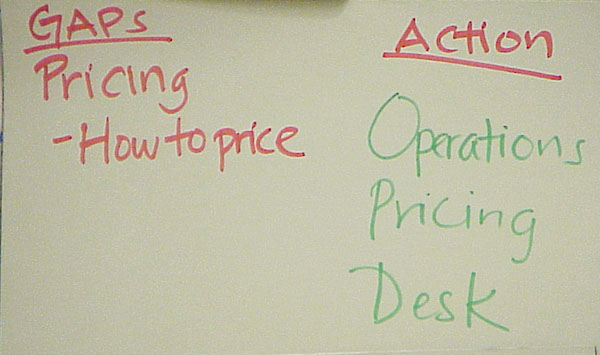 GAPS
Pricing
-How to price
Action
Operations
Pricing
Desk